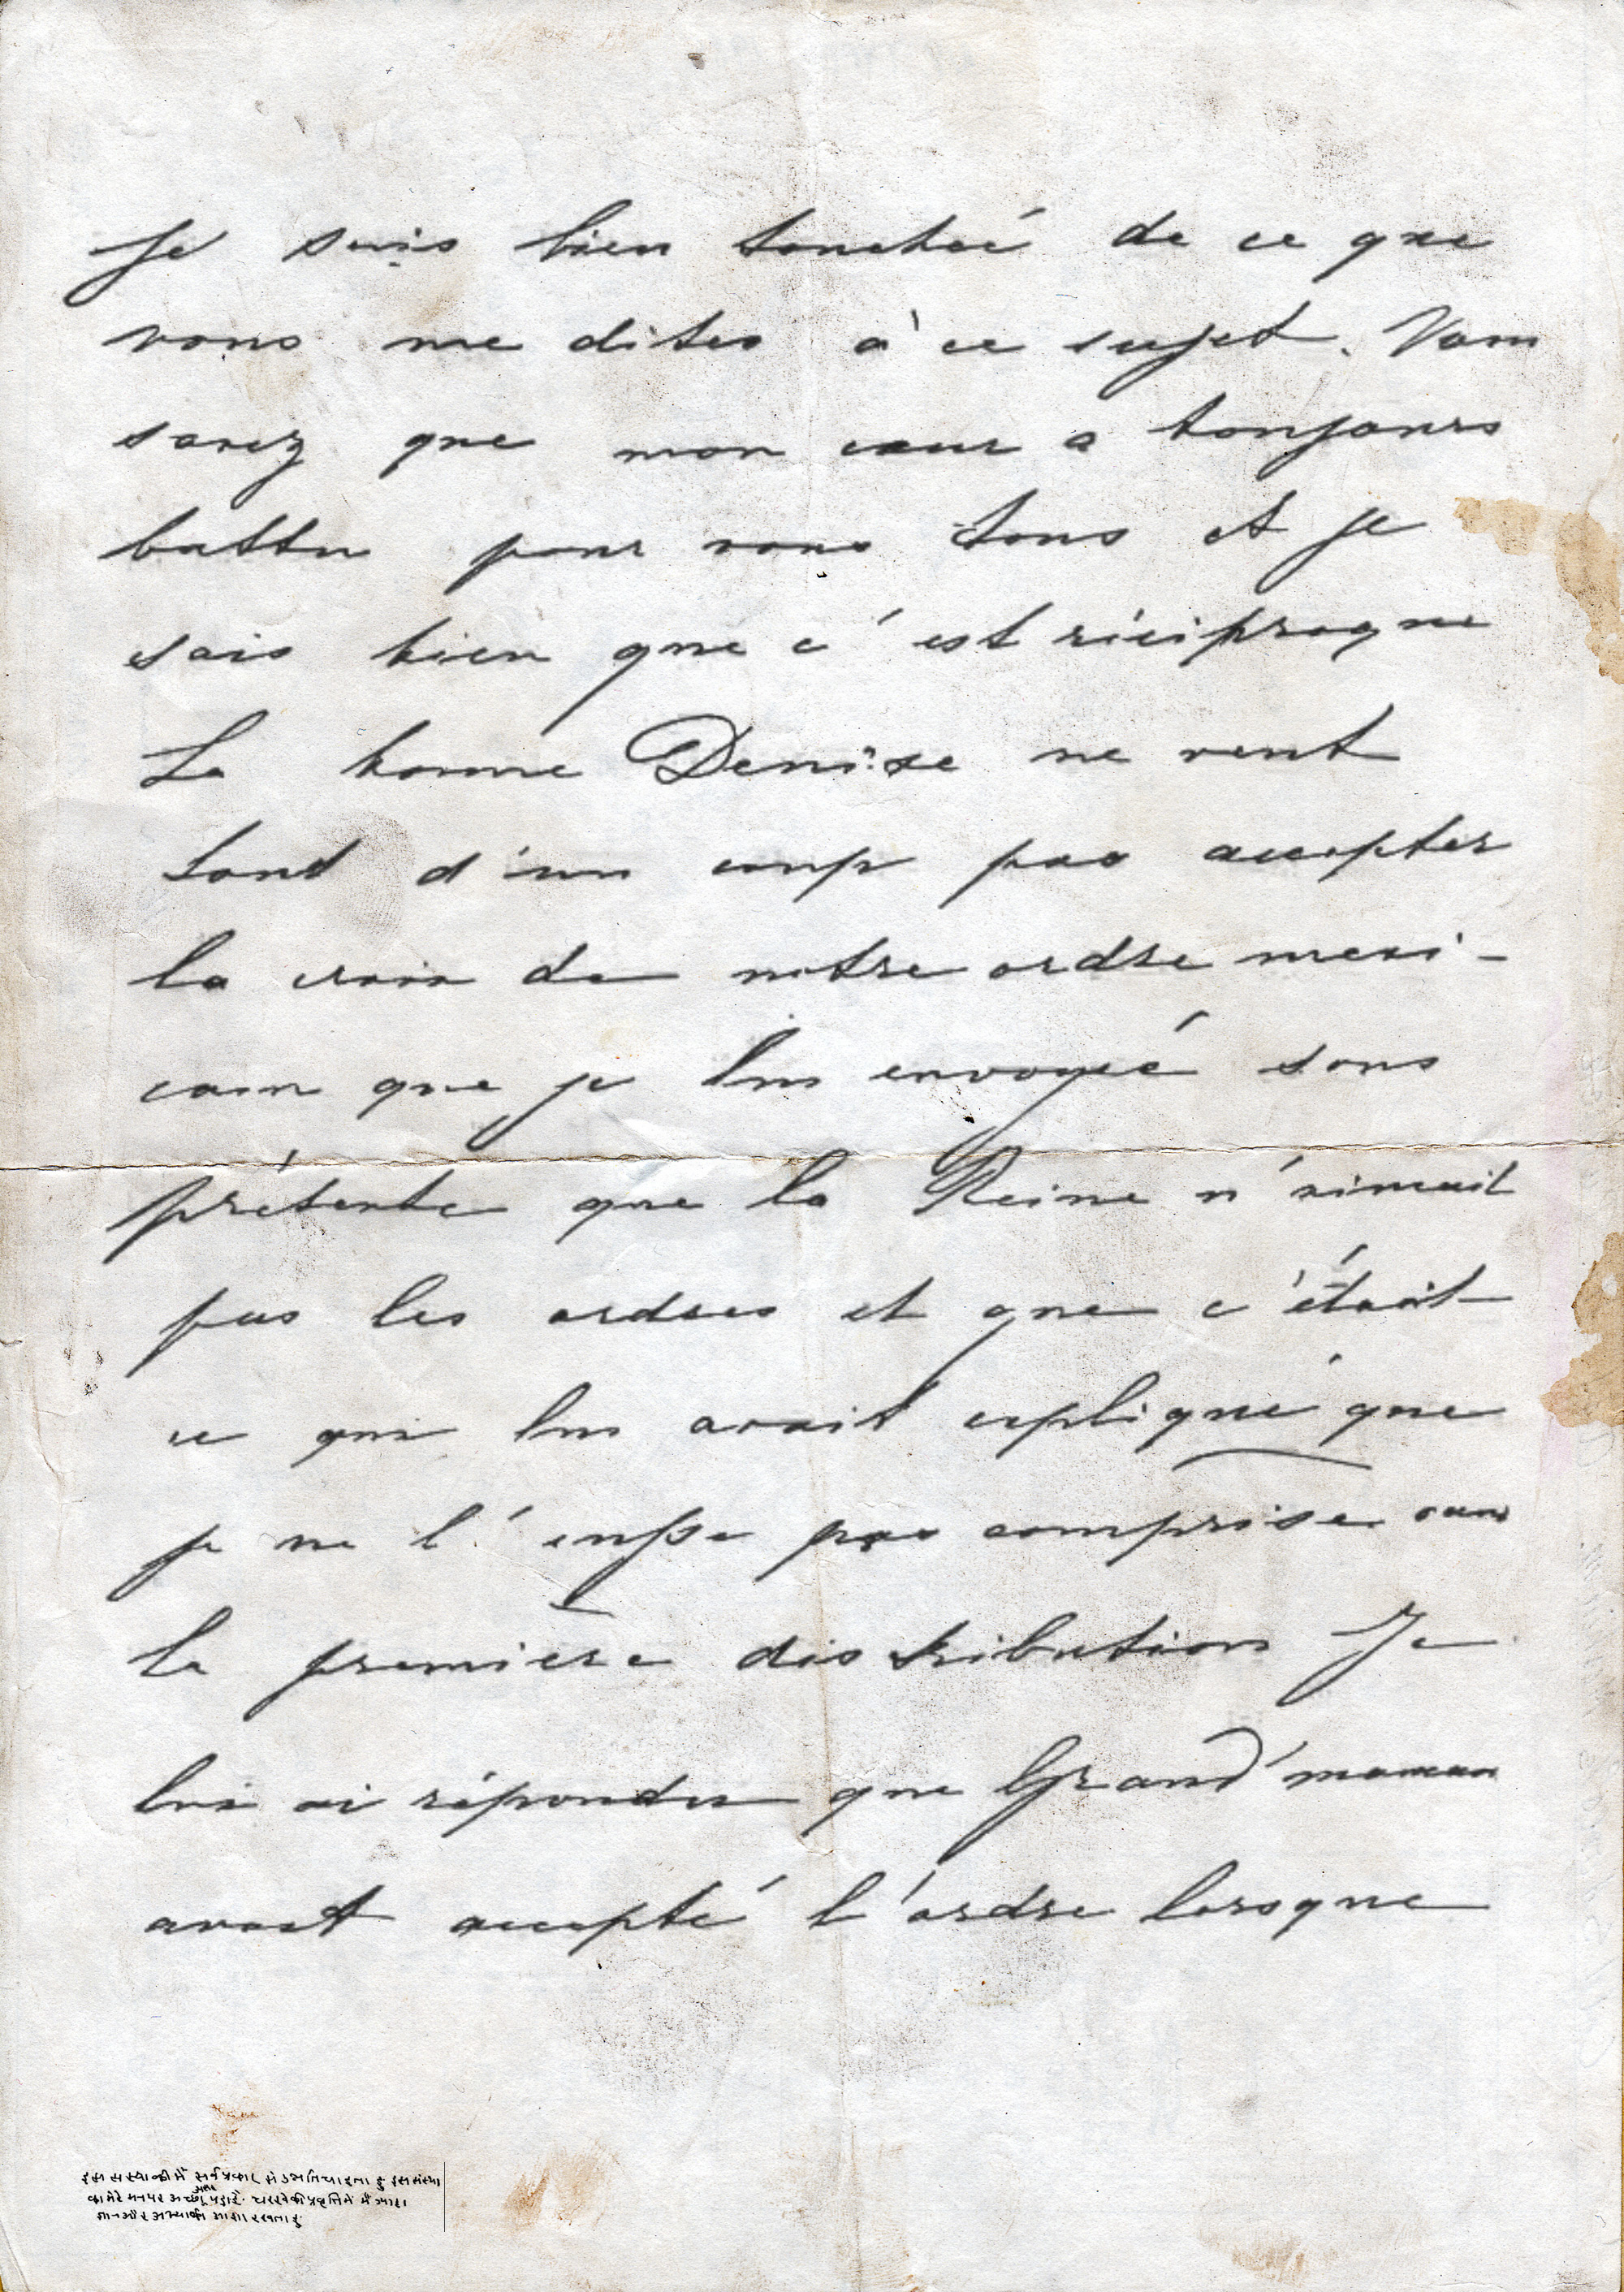 Je suis bien touchée de ce que
vous me dites à ce sujet. Vous
savez que mon cœur a toujours
battu pour vous tous et je
sais bien que c'est réciproque
La bonne Denise ne veut
tout d'un coup pas accepter
la croix de notre ordre mexi-
cain que je lui envoyée sous
prétexte que la Reine n'aimait
pas les ordres et que c'était
ce qui lui avait expliqué que
je ne l'eusse pas comprise dans
la première distribution Je
lui ai répondu que Grand'maman
avait accepté l'ordre lorsque
इस संस्थाकी मैं सर्व प्रकार से उन्नति चाहता हुं इस संस्था
का मेरे मनपर अच्छा असर पड़ा है. चरखेकी प्रवृत्तिमें मैं ज्यादा
ज्ञान और अभ्यासकी आशा रखता हुं